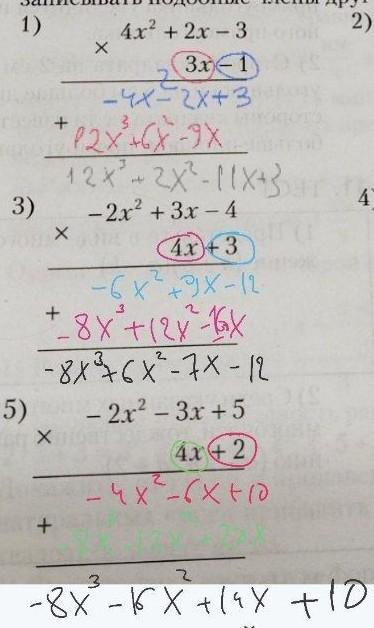 записывать подобные члены друг
1) 4x² + 2x − 3 2)
× 3x − 1
−4x² − 2x + 3
+
12x³ + 6x² − 9x
12x³ + 2x² − 11x + 3
3) −2x² + 3x − 4 4)
× 4x + 3
−6x² + 9x − 12
+
−8x³ + 12x² − 16x
−8x³ + 6x² − 7x − 12
5) −2x² − 3x + 5
× 4x + 2
−4x² − 6x + 10
+
−8x³ − 12x² + 20x
−8x³ − 16x² + 14x + 10